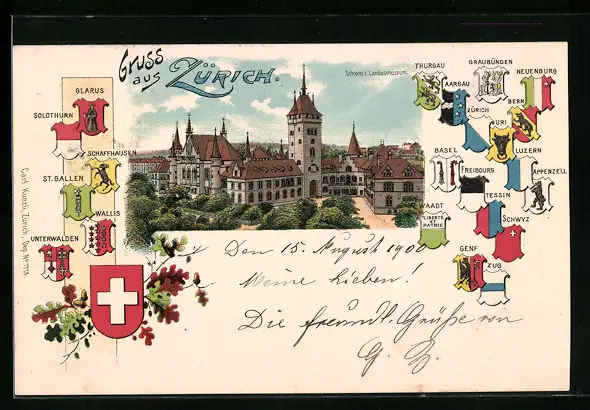 Gruss
aus
Zürich.
Schweiz. Landesmuseum
GLARUS
SOLOTHURN
SCHAFFHAUSEN
ST. GALLEN
WALLIS
UNTERWALDEN
THURGAU
GRAUBÜNDEN
NEUENBURG
AARGAU
BERN
ZÜRICH
URI
LUZERN
BASEL
FREIBOURG
APPENZELL
TESSIN
WAADT
LIBERTÉ
ET
PATRIE
SCHWYZ
GENF
ZUG
Carl Künzli, Zürich. Dep. No 1118.
Den 15. August 190
Meine Lieben!
Die freundl. Grüße von
G.